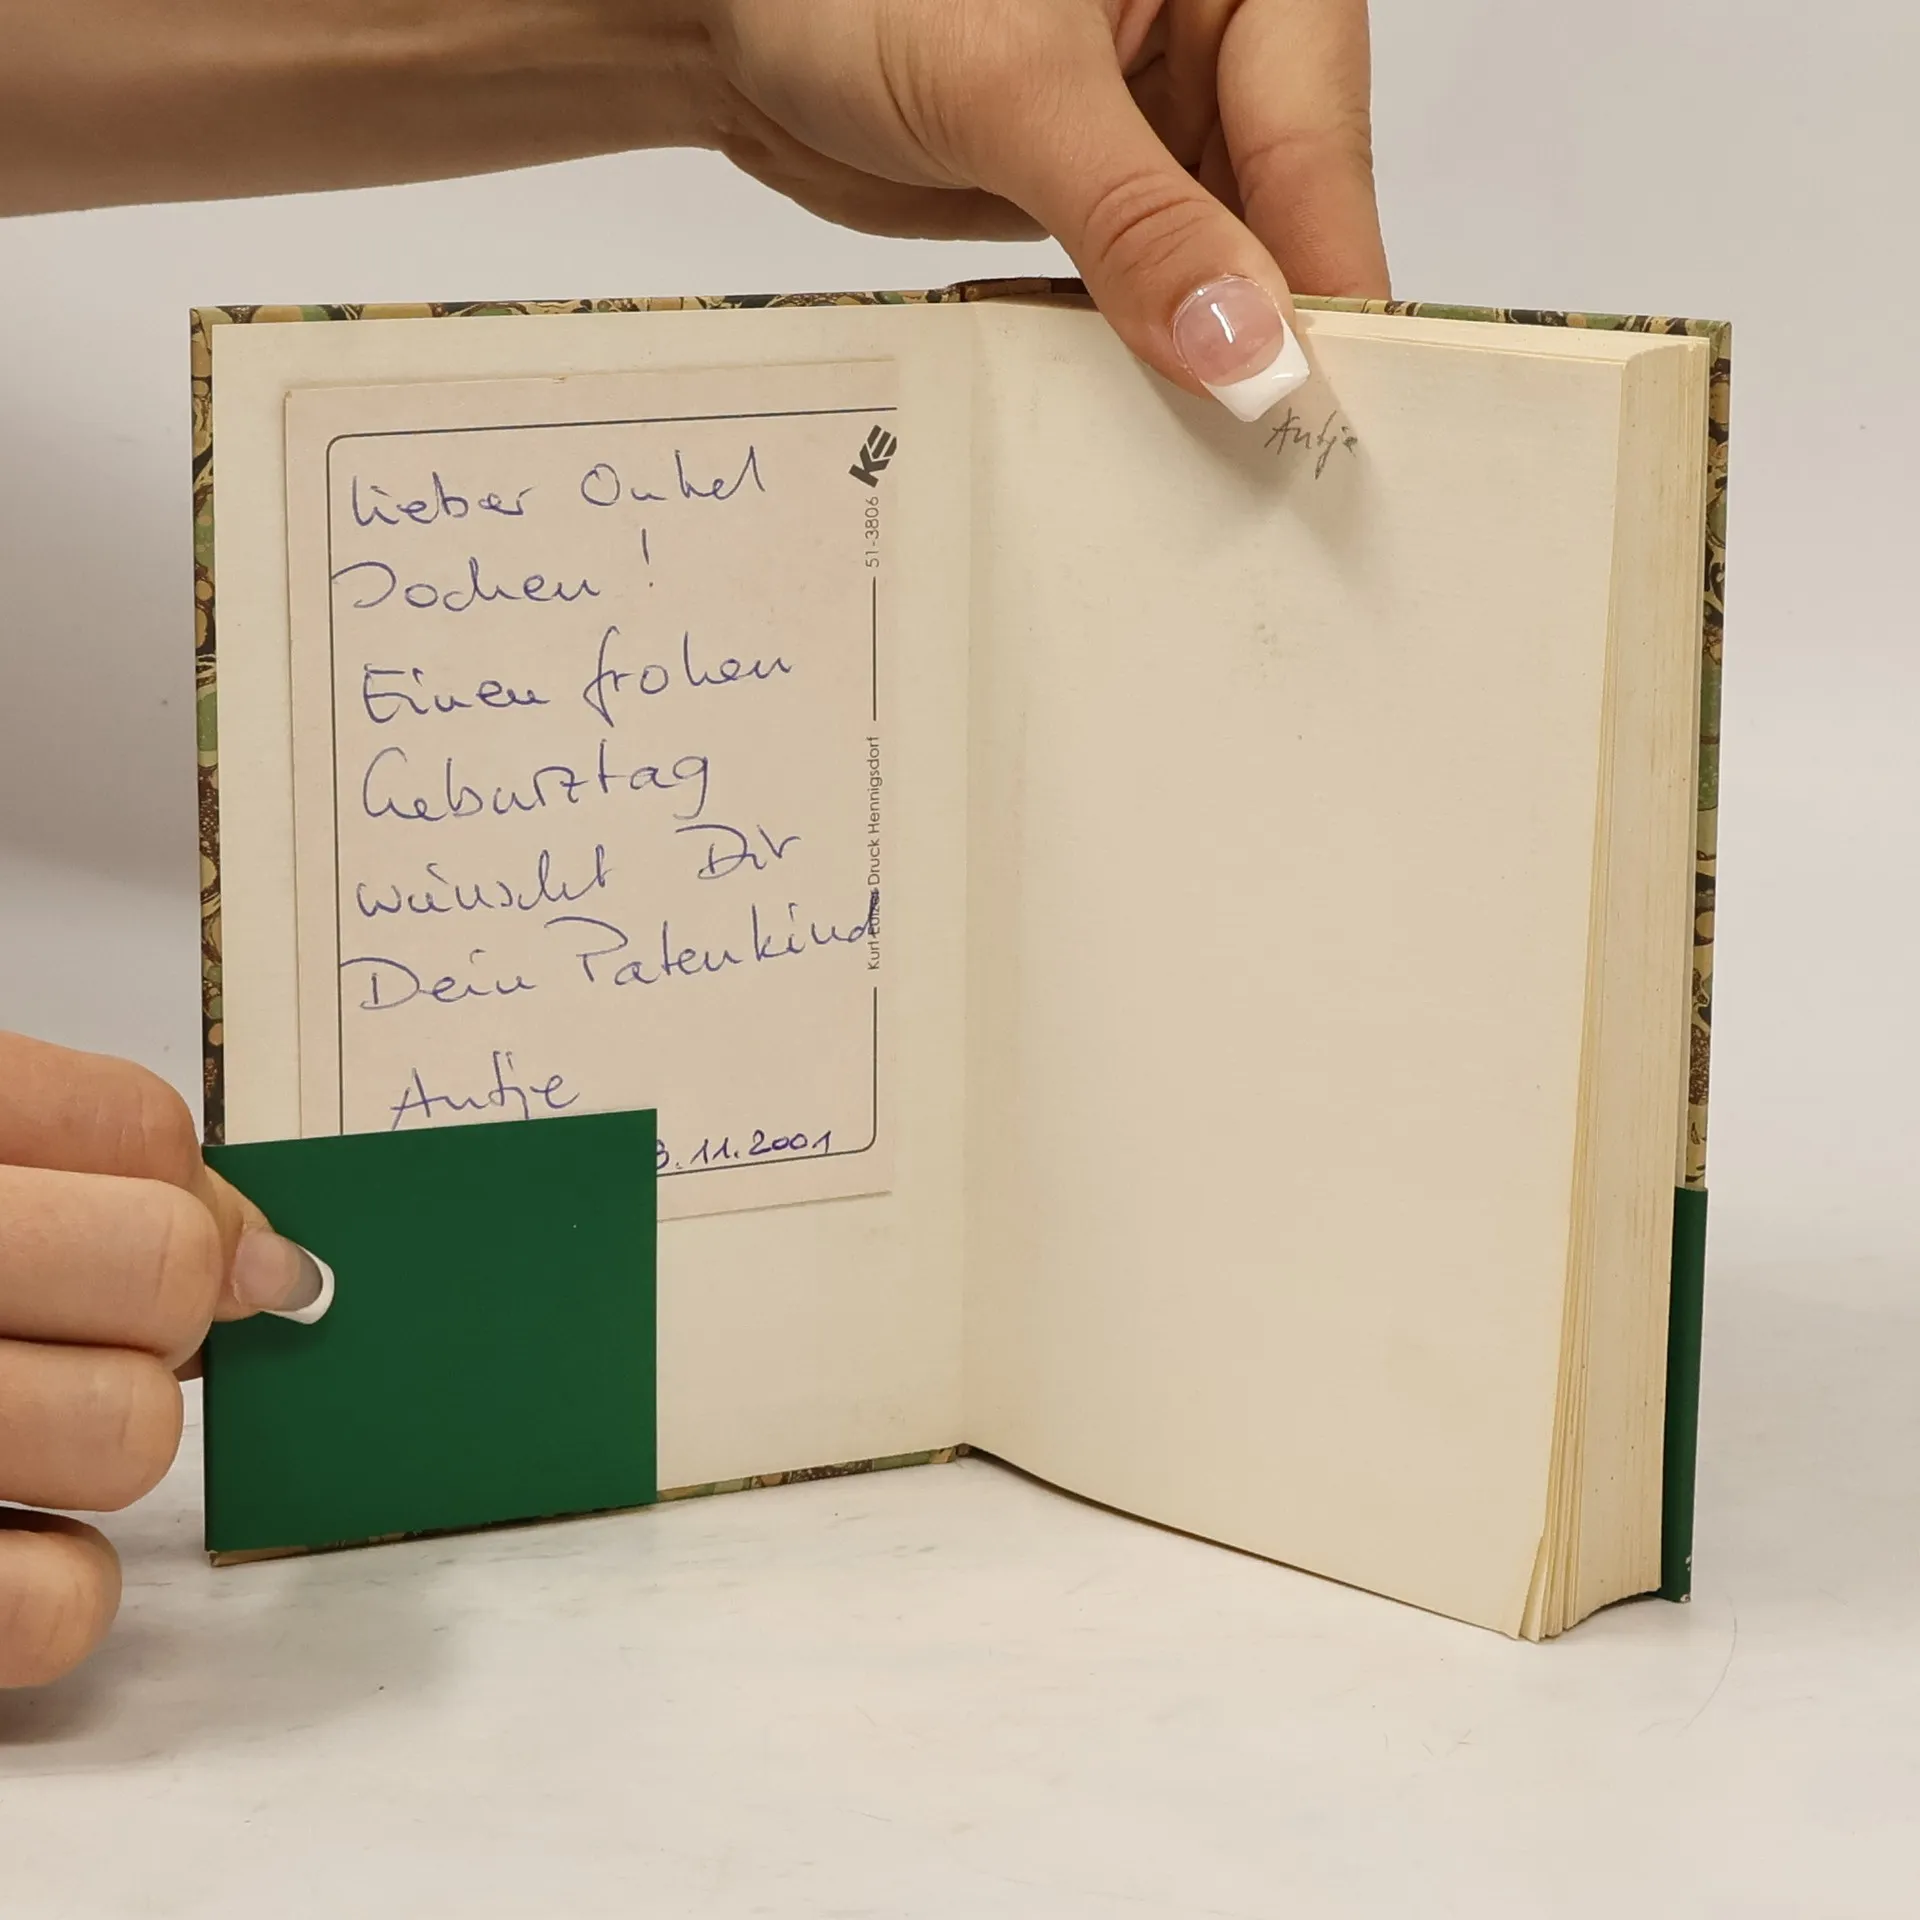 lieber Onkel
Jochen !
Einen frohen
Geburztag
wünscht Dir
Dein Patenkind
Antje
3.11.2001
KE
51-3806
Kurt Druck Hennigsdorf
Antje